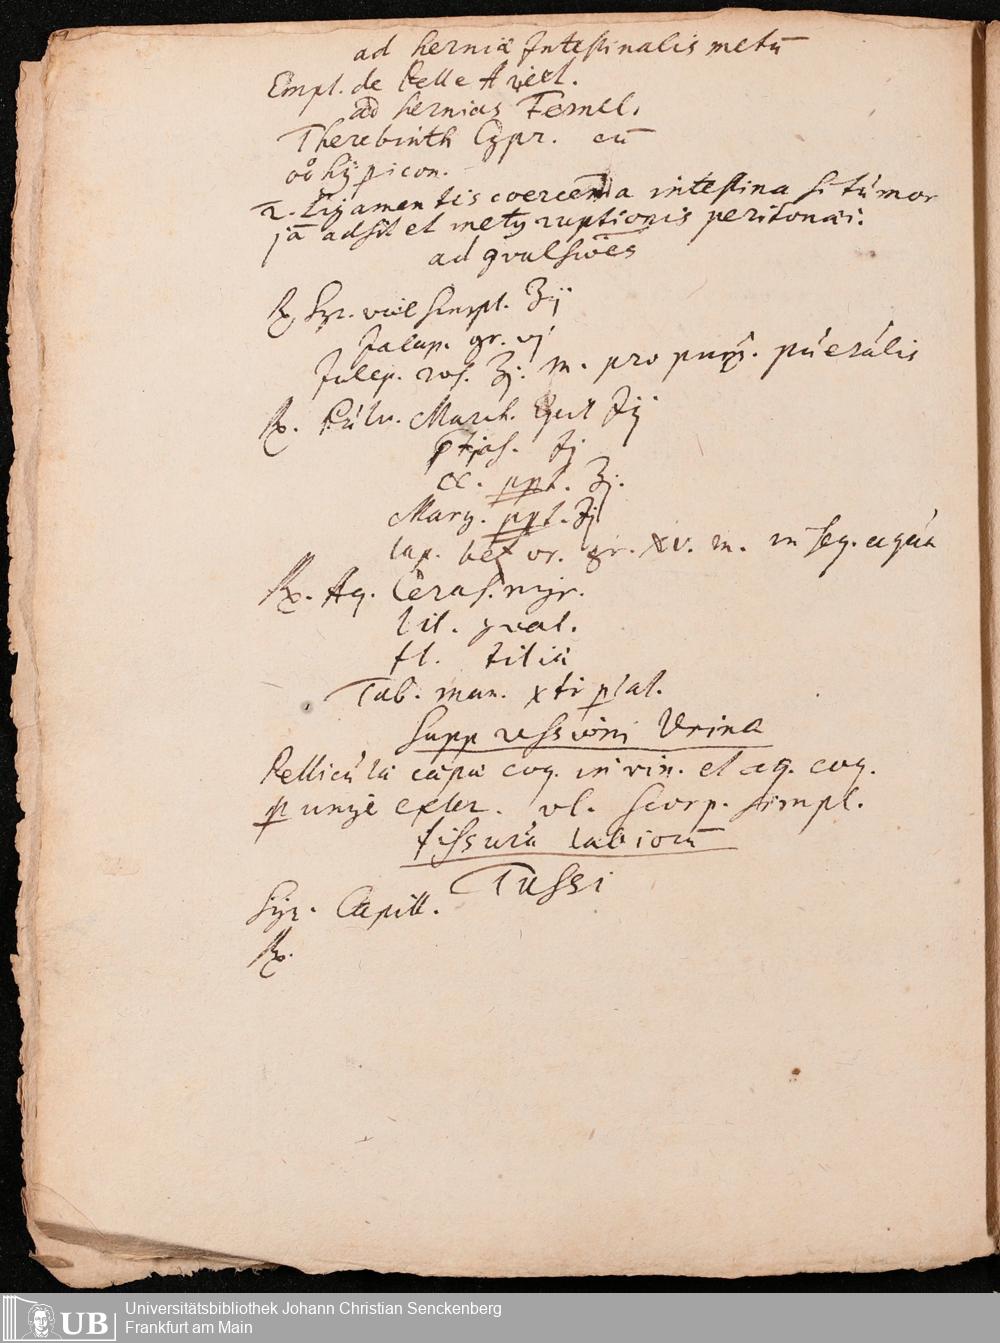 ad herniã Intestinalis metũ
Empl. de Pelle Ariet.
ad hernias Fernel.
Therebinth Cypr. cũ
hypicon.
2. Ligamentis coercenda intestina si tumor
jã adsit et metq ruptionis peritonaei.
ad
℞ Syr. viol simpl. ʒij
Jalap. gr. vj
Julep. ros. ʒj. m. pro purg. puerulis
℞. Pulv. March.
cc. ppt. ʒj.
Marg. ppt.
lap. bez or. gr. xv. m. in seq. aqua
℞. Aq. Ceras. nigr.
lil. qval.
fl. tiliæ
Tab. man. xti plat.
Suppressioni Urinæ
Pellicula cæpæ coq. in vin. et aq. coq.
exter. vl. Scorp. simpl.
fissuræ labiorũ
Tussi
Syr. Capill.
℞.
Universitätsbibliothek Johann Christian Senckenberg
Frankfurt am Main
UB